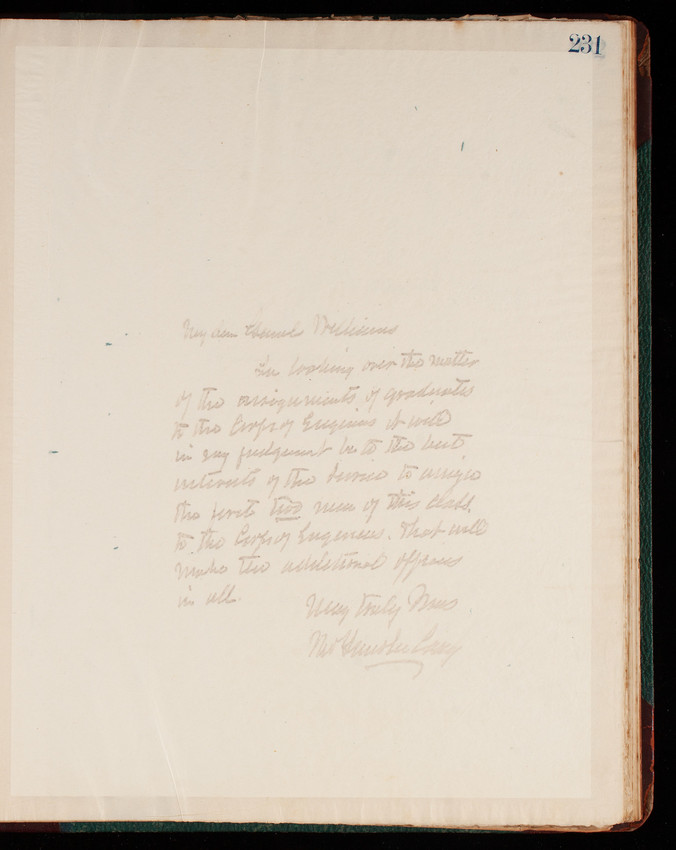 231
My dear Colonel Williams
In looking over the matter
of the assignments of graduates
to the Corps of Engineers it will
in my judgment be to the best
interests of the service to assign
the first two men of this class,
to the Corps of Engineers. That will
make two additional officers
in all.
Very truly Yours
Thos Lincoln Casey